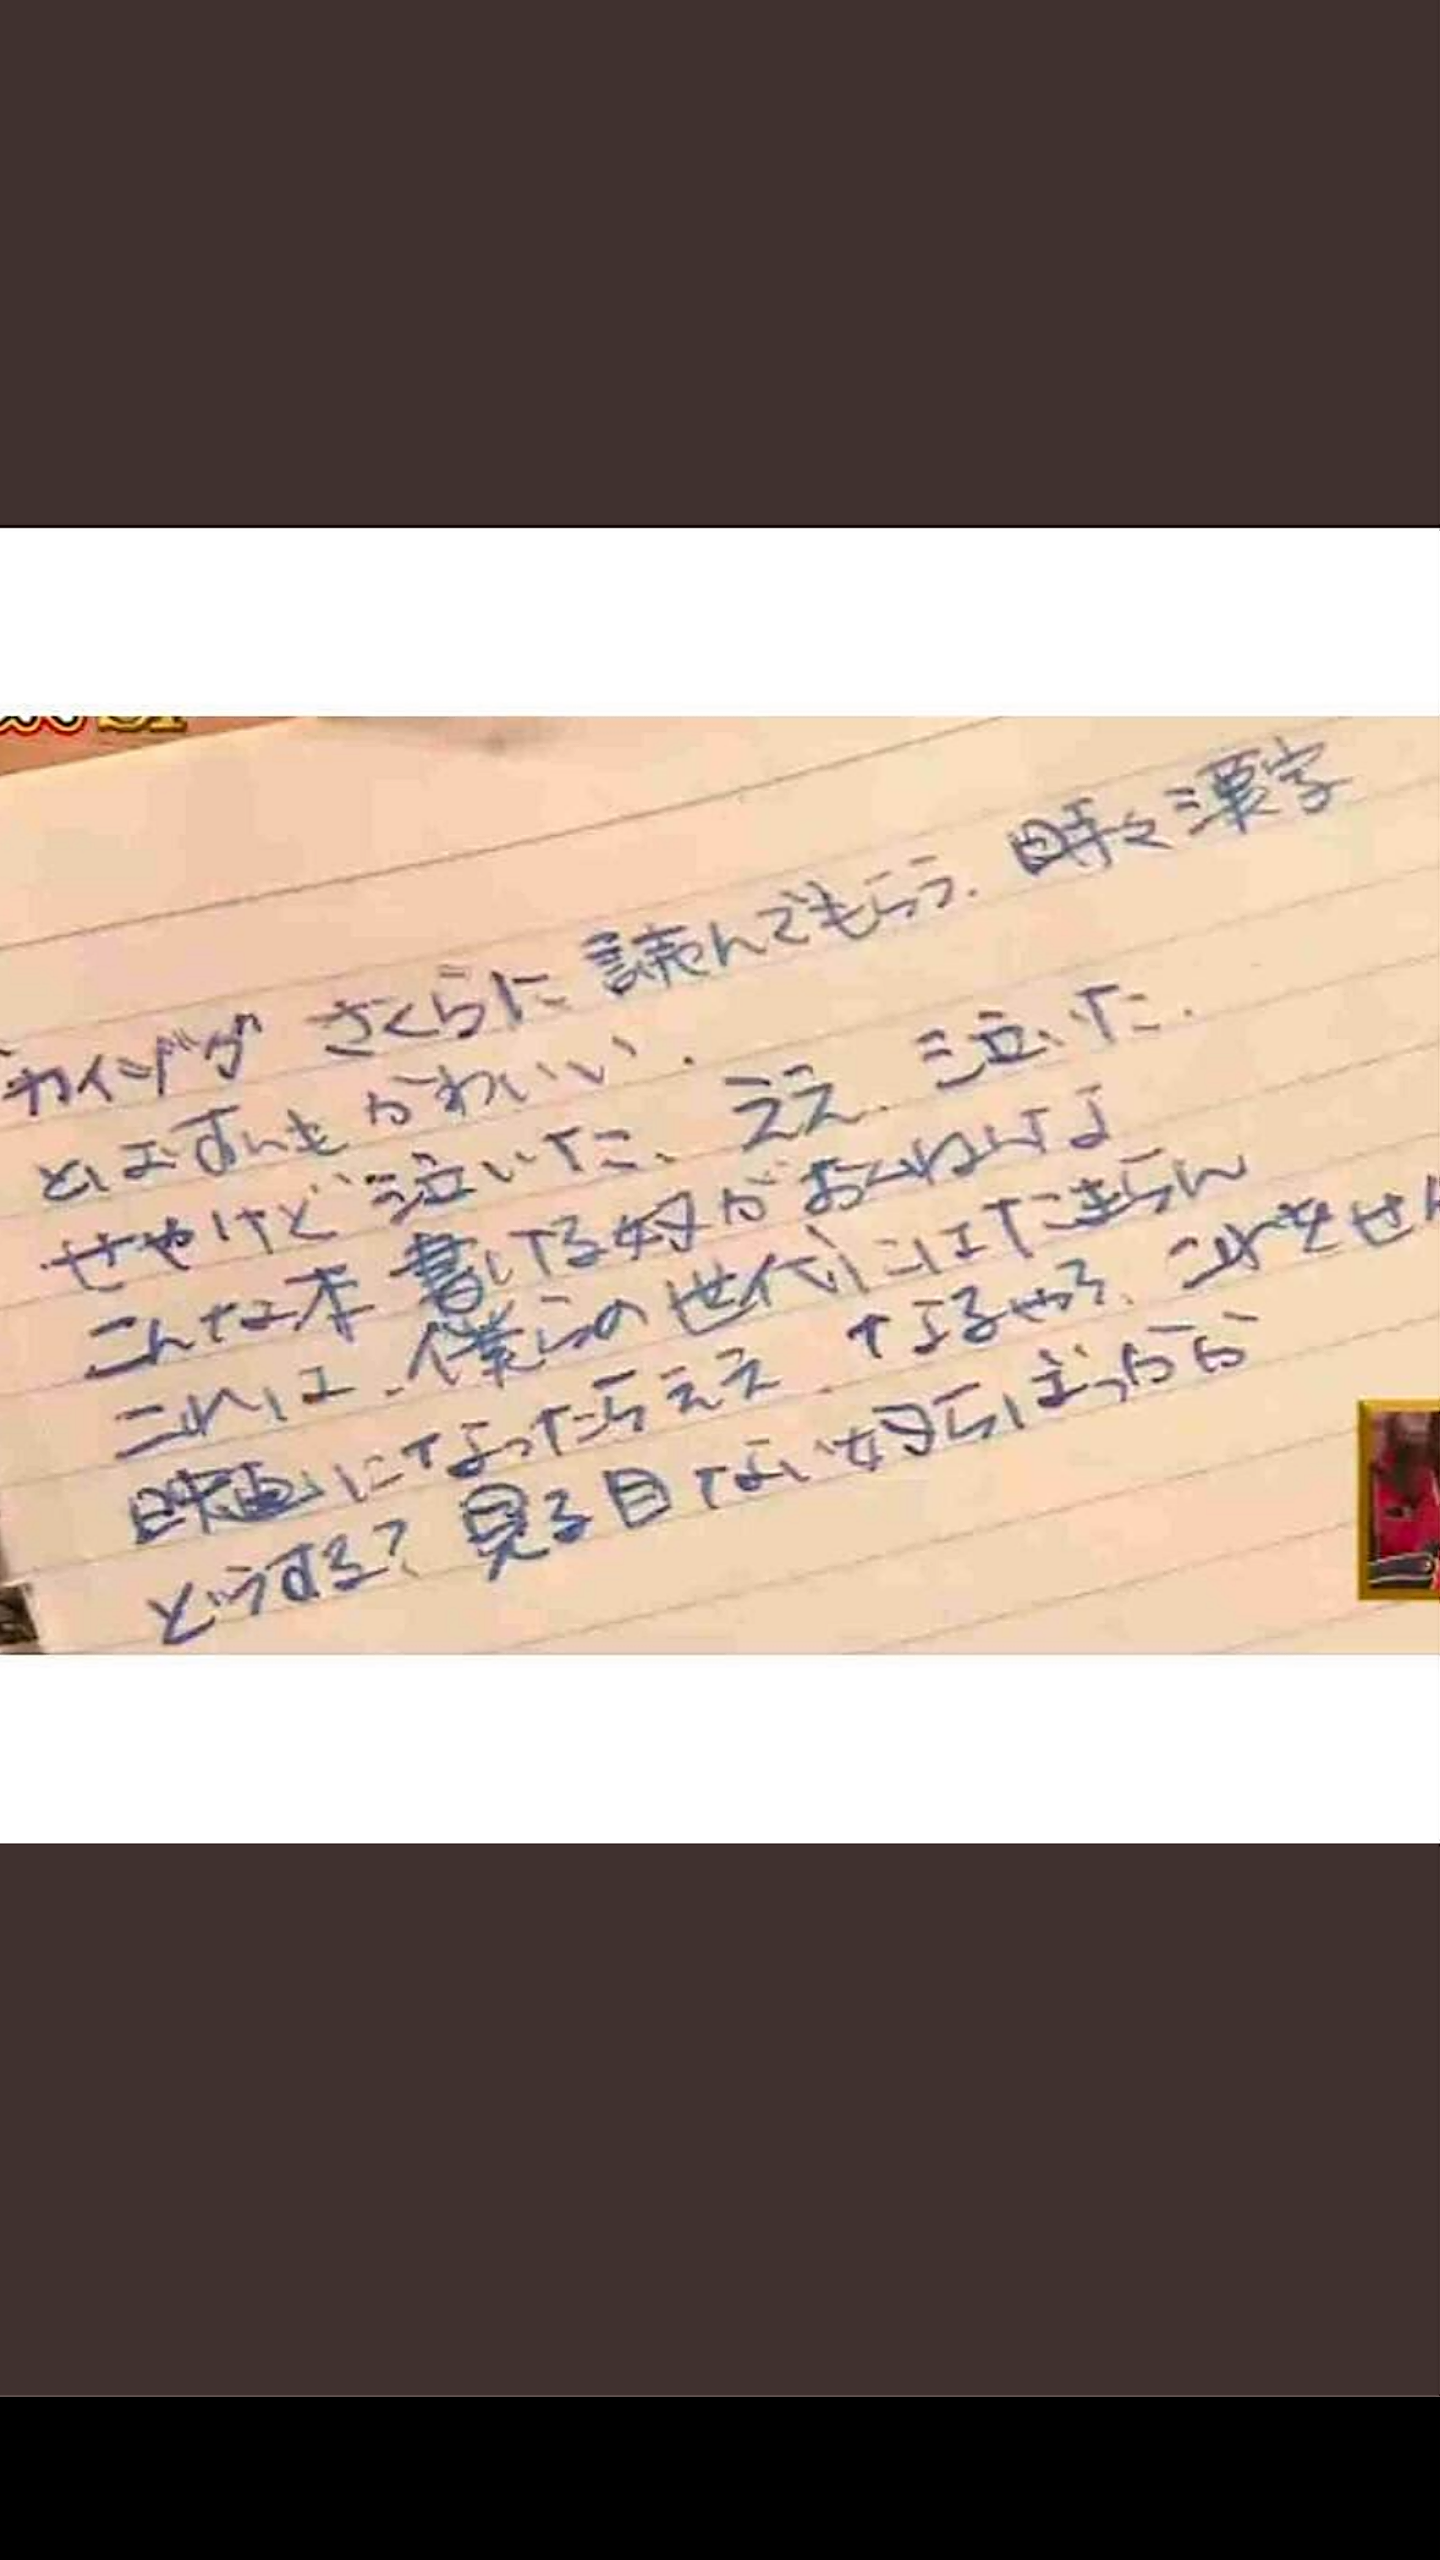 カインダ さくらに 読んでもらう. 時々漢字
とばすんも かわいい.
せやけど 泣いた、ええ. 泣いた.
こんな本 書いてる奴がおんねんなよ
これは、僕らの世代にはたまらん
映画になったらええ. なるやろ、これをせん
どうする? 見る目ない奴らばっからら